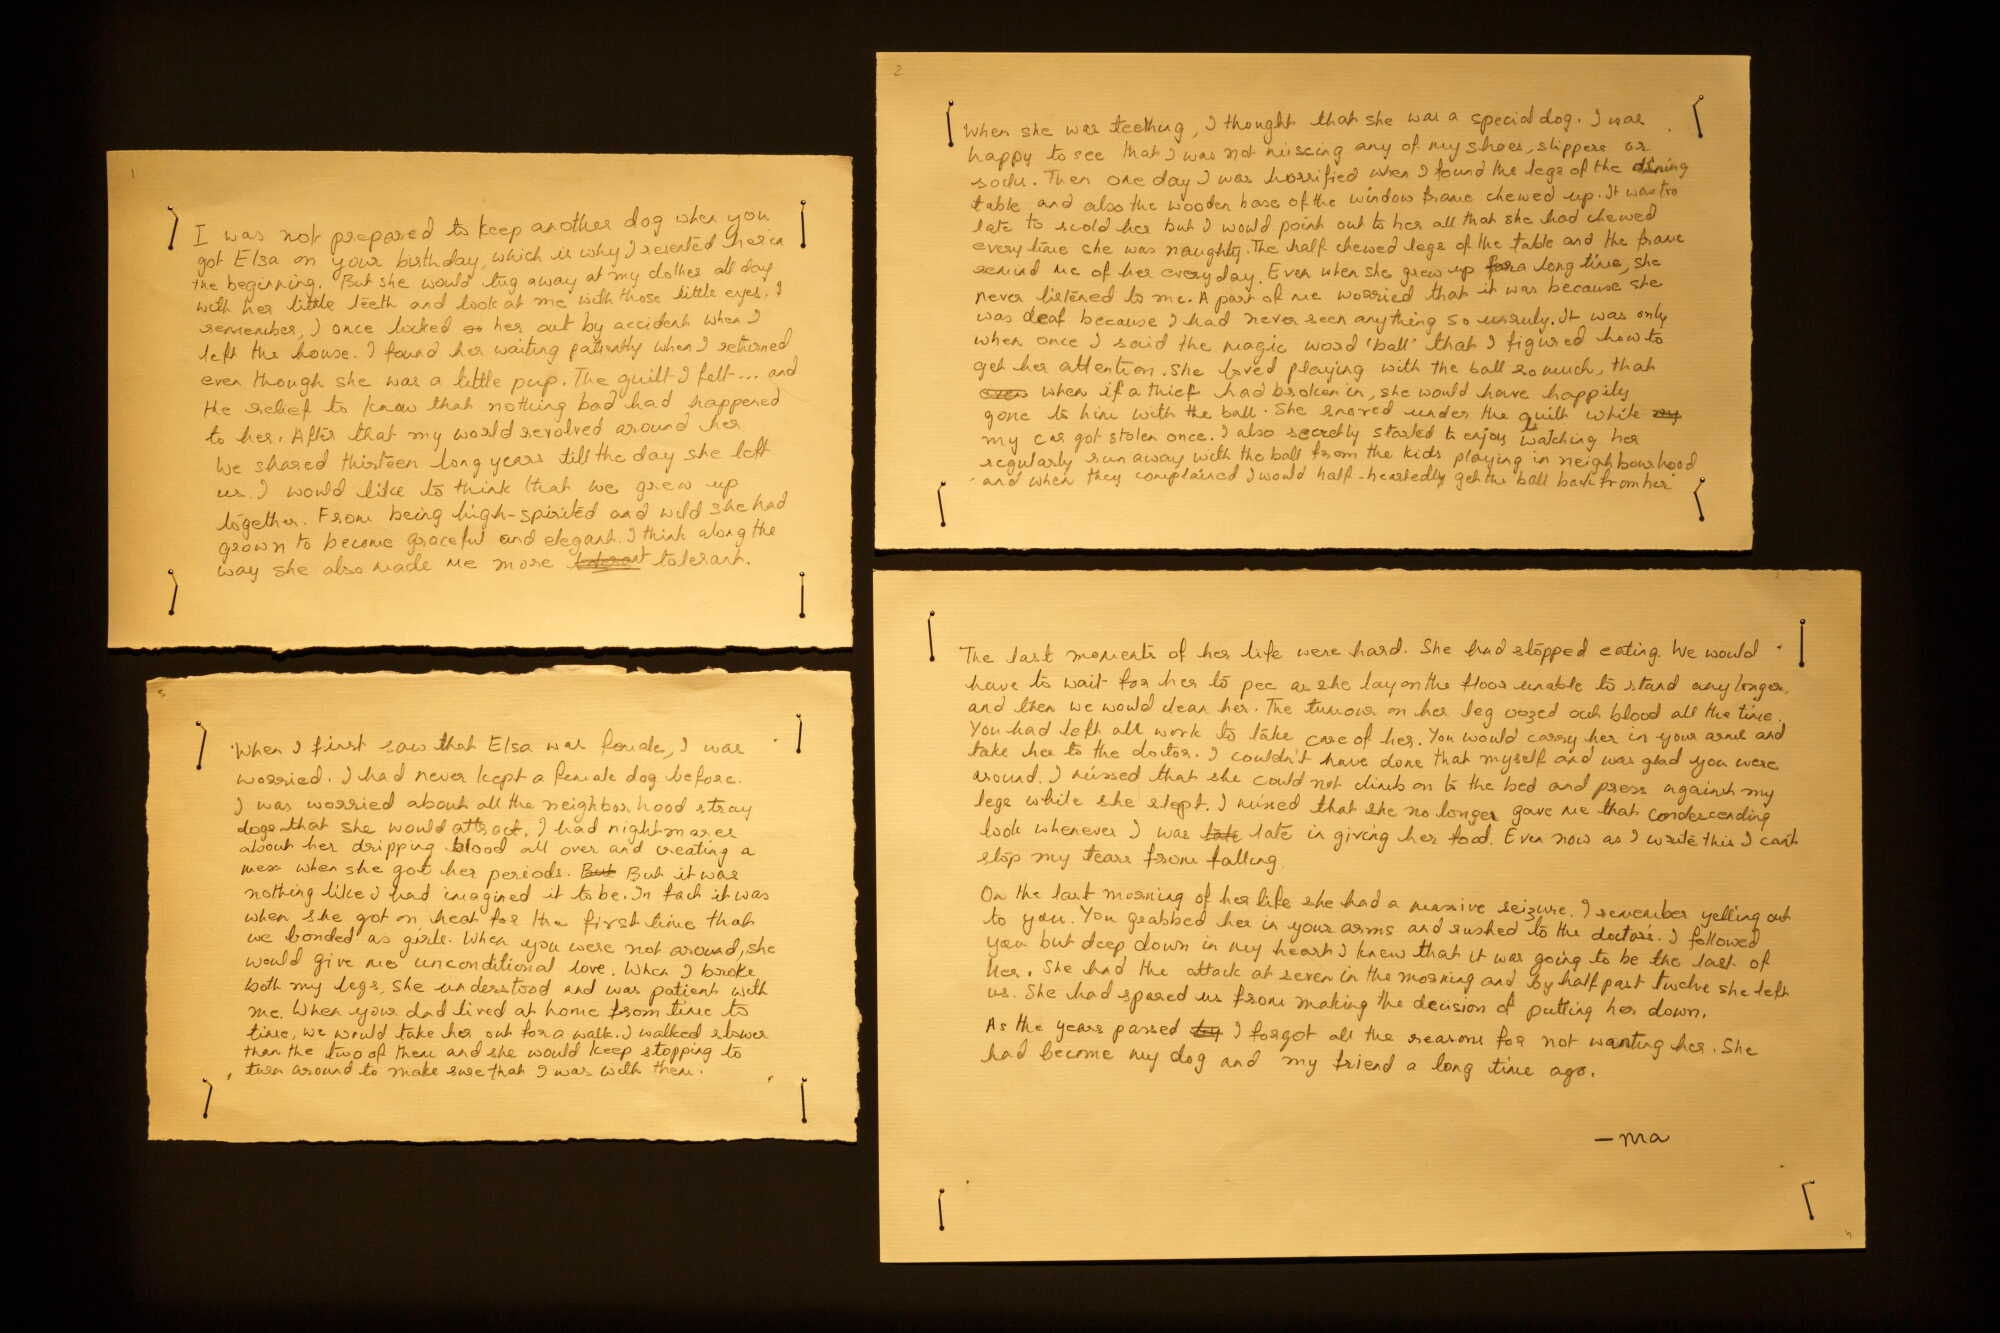 1
I was not prepared to keep another dog when you
got Elsa on your birthday, which is why I resented her in
the beginning. But she would tug away at my clothes all day
with her little teeth and look at me with those little eyes. I
remember, I once locked her out by accident when I
left the house. I found her waiting patiently when I returned
even though she was a little pup. The guilt I felt... and
the relief to know that nothing bad had happened
to her. After that my world revolved around her
We shared thirteen long years till the day she left
us. I would like to think that we grew up
together. From being high-spirited and wild she had
grown to become graceful and elegant. I think along the
way she also made me more tolerant.
2
When she was teething, I thought that she was a special dog. I was
happy to see that I was not missing any of my shoes, slippers or
socks. Then one day I was horrified when I found the legs of the dining
table and also the wooden base of the window frame chewed up. It was too
late to scold her but I would point out to her all that she had chewed
every time she was naughty. The half chewed legs of the table and the frame
remind me of her everyday. Even when she grew up for a long time, she
never listened to me. A part of me worried that it was because she
was deaf because I had never seen anything so unruly. It was only
when once I said the magic word 'ball' that I figured how to
get her attention. She loved playing with the ball so much, that
even when if a thief had broken in, she would have happily
gone to him with the ball. She snored under the quilt while my
my car got stolen once. I also secretly started to enjoy watching her
regularly run away with the ball from the kids playing in neighbourhood
and when they complained I would half-heartedly get the ball back from her
3
When I first saw that Elsa was female, I was
worried. I had never kept a female dog before.
I was worried about all the neighborhood stray
dogs that she would attract. I had nightmares
about her dripping blood all over and creating a
mess when she got her periods. But But it was
nothing like I had imagined it to be. In fact it was
when she got on heat for the first time that
we bonded as girls. When you were not around, she
would give me unconditional love. When I broke
both my legs, she understood and was patient with
me. When your dad lived at home from time to
time, we would take her out for a walk. I walked slower
than the two of them and she would keep stopping to
turn around to make sure that I was with them.
The last moments of her life were hard. She had stopped eating. We would
have to wait for her to pee as she lay on the floor unable to stand any longer,
and then we would clean her. The tumour on her leg oozed out blood all the time.
You had left all work to take care of her. You would carry her in your arms and
take her to the doctor. I couldn't have done that myself and was glad you were
around. I missed that she could not climb on to the bed and press against my
legs while she slept. I missed that she no longer gave me that condescending
look whenever I was late late in giving her food. Even now as I write this I can't
stop my tears from falling.
On the last morning of her life she had a massive seizure. I remember yelling out
to you. You grabbed her in your arms and rushed to the doctors. I followed
you but deep down in my heart I knew that it was going to be the last of
her. She had the attack at seven in the morning and by half past twelve she left
us. She had spared us from making the decision of putting her down.
As the years passed by I forgot all the reasons for not wanting her. She
had become my dog and my friend a long time ago.
- ma